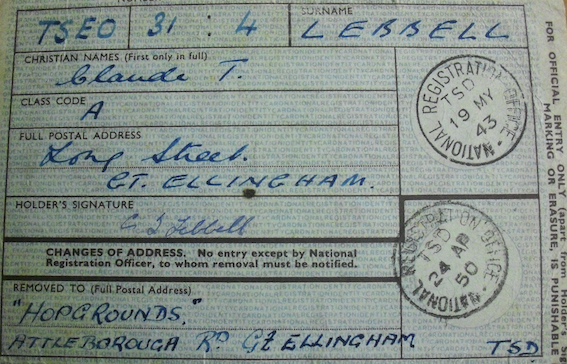 SURNAME
TSEO 31 : 4 LEBBELL
CHRISTIAN NAMES (First only in full)
Claude T.
CLASS CODE
A
FULL POSTAL ADDRESS
Long Street.
GT. ELLINGHAM.
HOLDER'S SIGNATURE
C T Lebbell
CHANGES OF ADDRESS. No entry except by National
Registration Officer, to whom removal must be notified.
REMOVED TO (Full Postal Address)
"HOPGROUNDS."
ATTLEBOROUGH RD GT ELLINGHAM TSD
NATIONAL REGISTRATION OFFICE
TSD
19 MY
43
NATIONAL REGISTRATION OFFICE
TSD
24 AP
50
FOR OFFICIAL ENTRY ONLY (apart from Holder's
MARKING OR ERASURE, IS PUNISHABLE